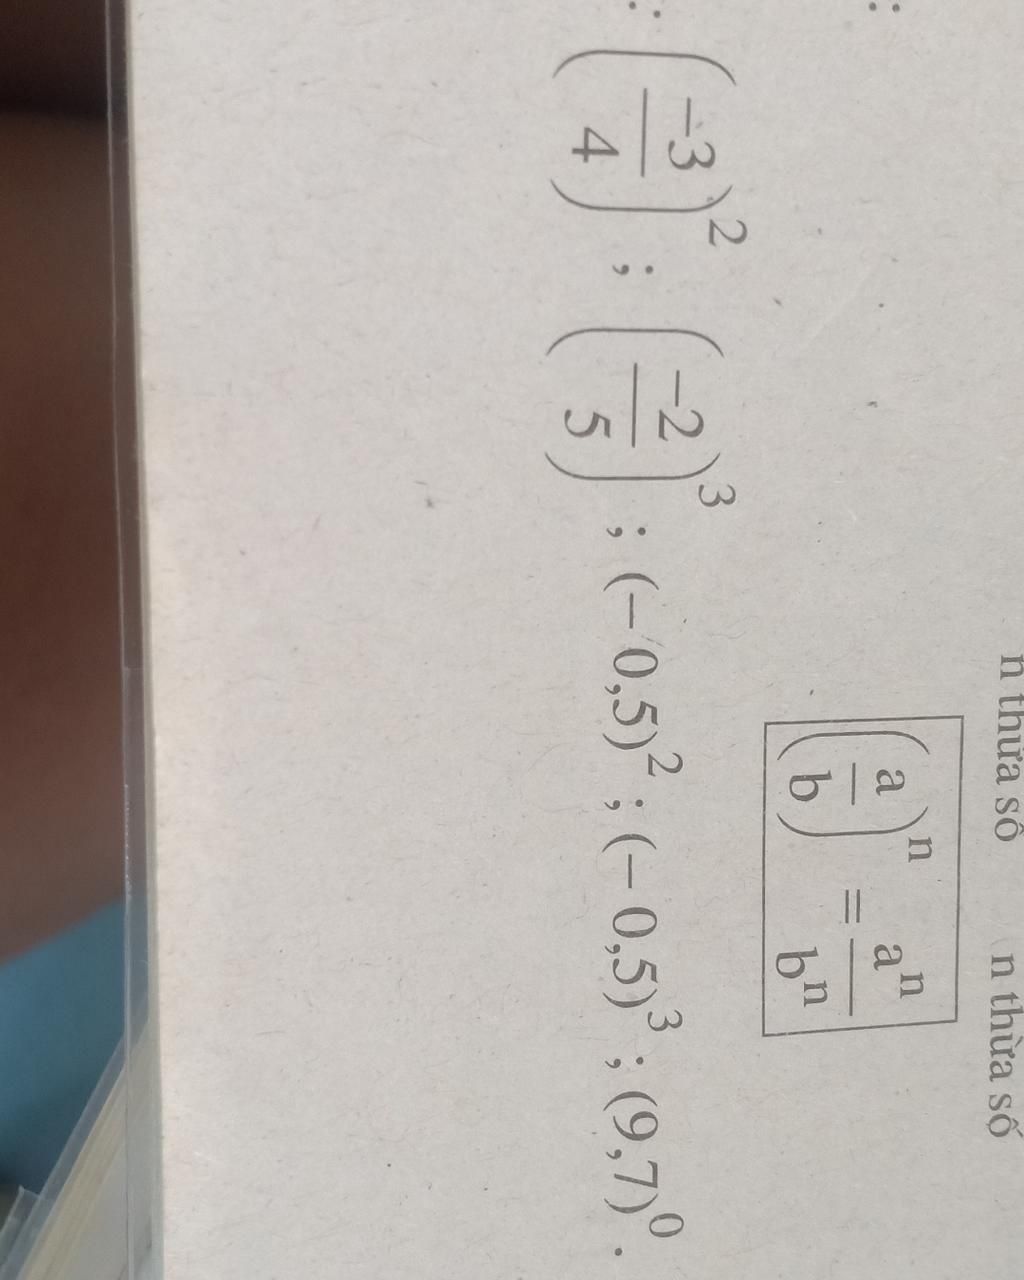 n thừa số n thừa số
(a/b)ⁿ = aⁿ/bⁿ
: (-3/4)² ; (-2/5)³ ; (-0,5)² ; (-0,5)³ ; (9,7)⁰.